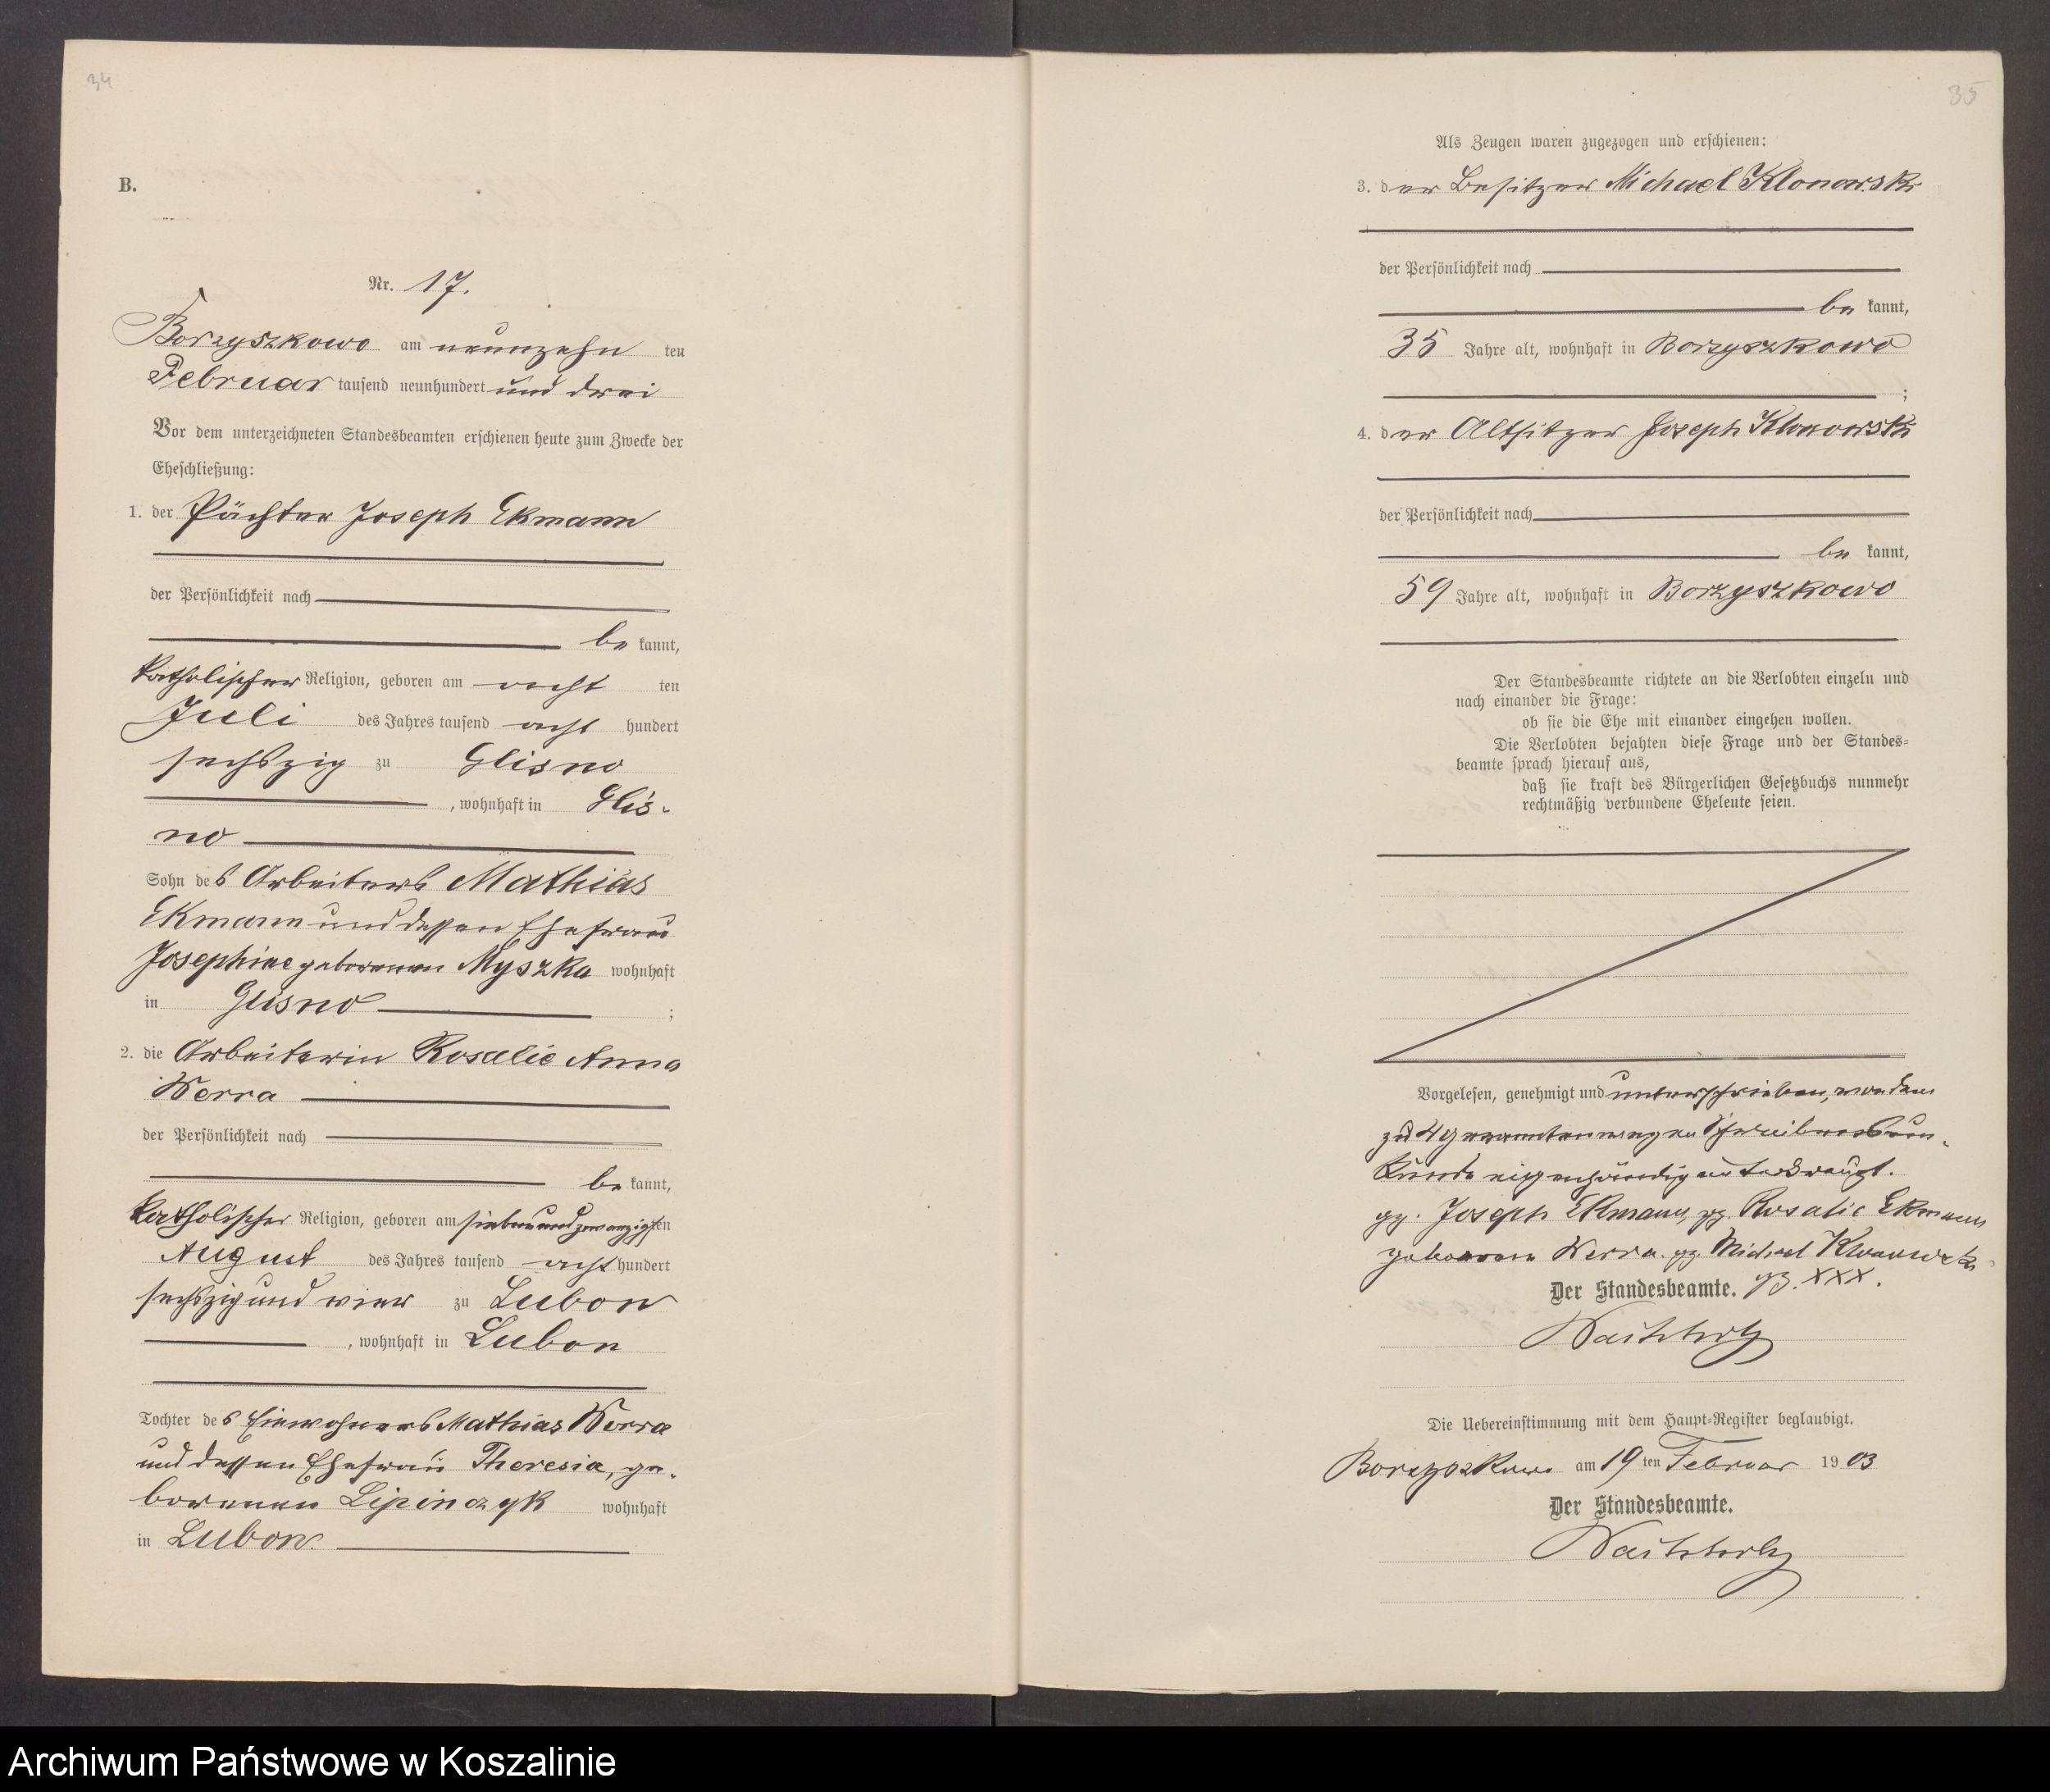 34
B.
Nr. 17.
Borzyszkowo am neunzehn ten
Februar tausend neunhundert und drei
Vor dem unterzeichneten Standesbeamten erschienen heute zum Zwecke der
Eheschließung:
1. der Pächter Joseph Ekmann
der Persönlichkeit nach
be kannt,
katholischer Religion, geboren am acht ten
Juli des Jahres tausend acht hundert
sechszig zu Glisno
, wohnhaft in Glis-
no
Sohn des Arbeiters Mathias
Ekmann und dessen Ehefrau
Josephine geborenen Myszka wohnhaft
in Glisno ;
2. die Arbeiterin Rosalie Anna
Werra
der Persönlichkeit nach
be kannt,
katholischer Religion, geboren am siebenundzwanzigsten
August des Jahres tausend acht hundert
sechszig und vier zu Lubon
, wohnhaft in Lubon
Tochter des Einwohners Mathias Werra
und dessen Ehefrau Theresia, ge-
borenen Lipinczyk wohnhaft
in Lubon.
35
Als Zeugen waren zugezogen und erschienen:
3. der Besitzer Michael Klonowski
der Persönlichkeit nach
be kannt,
35 Jahre alt, wohnhaft in Borzyszkowo
;
4. der Altsitzer Joseph Klonowski
der Persönlichkeit nach
be kannt,
59 Jahre alt, wohnhaft in Borzyszkowo
Der Standesbeamte richtete an die Verlobten einzeln und
nach einander die Frage:
ob sie die Ehe mit einander eingehen wollen.
Die Verlobten bejahten diese Frage und der Standes=
beamte sprach hierauf aus,
daß sie kraft des Bürgerlichen Gesetzbuchs nunmehr
rechtmäßig verbundene Eheleute seien.
Vorgelesen, genehmigt und unterschrieben, von dem
zu 4 genannten wegen Schreibensun-
kunde eigenhändig unterkreuzt.
gz. Joseph Ekmann, gz. Rosalie Ekmann
geborene Werra. gz. Michael Klonowski
Der Standesbeamte. gz. XXX.
Die Uebereinstimmung mit dem Haupt=Register beglaubigt.
Borzyszkowo am 19 ten Februar 1903
Der Standesbeamte.
Archiwum Państwowe w Koszalinie